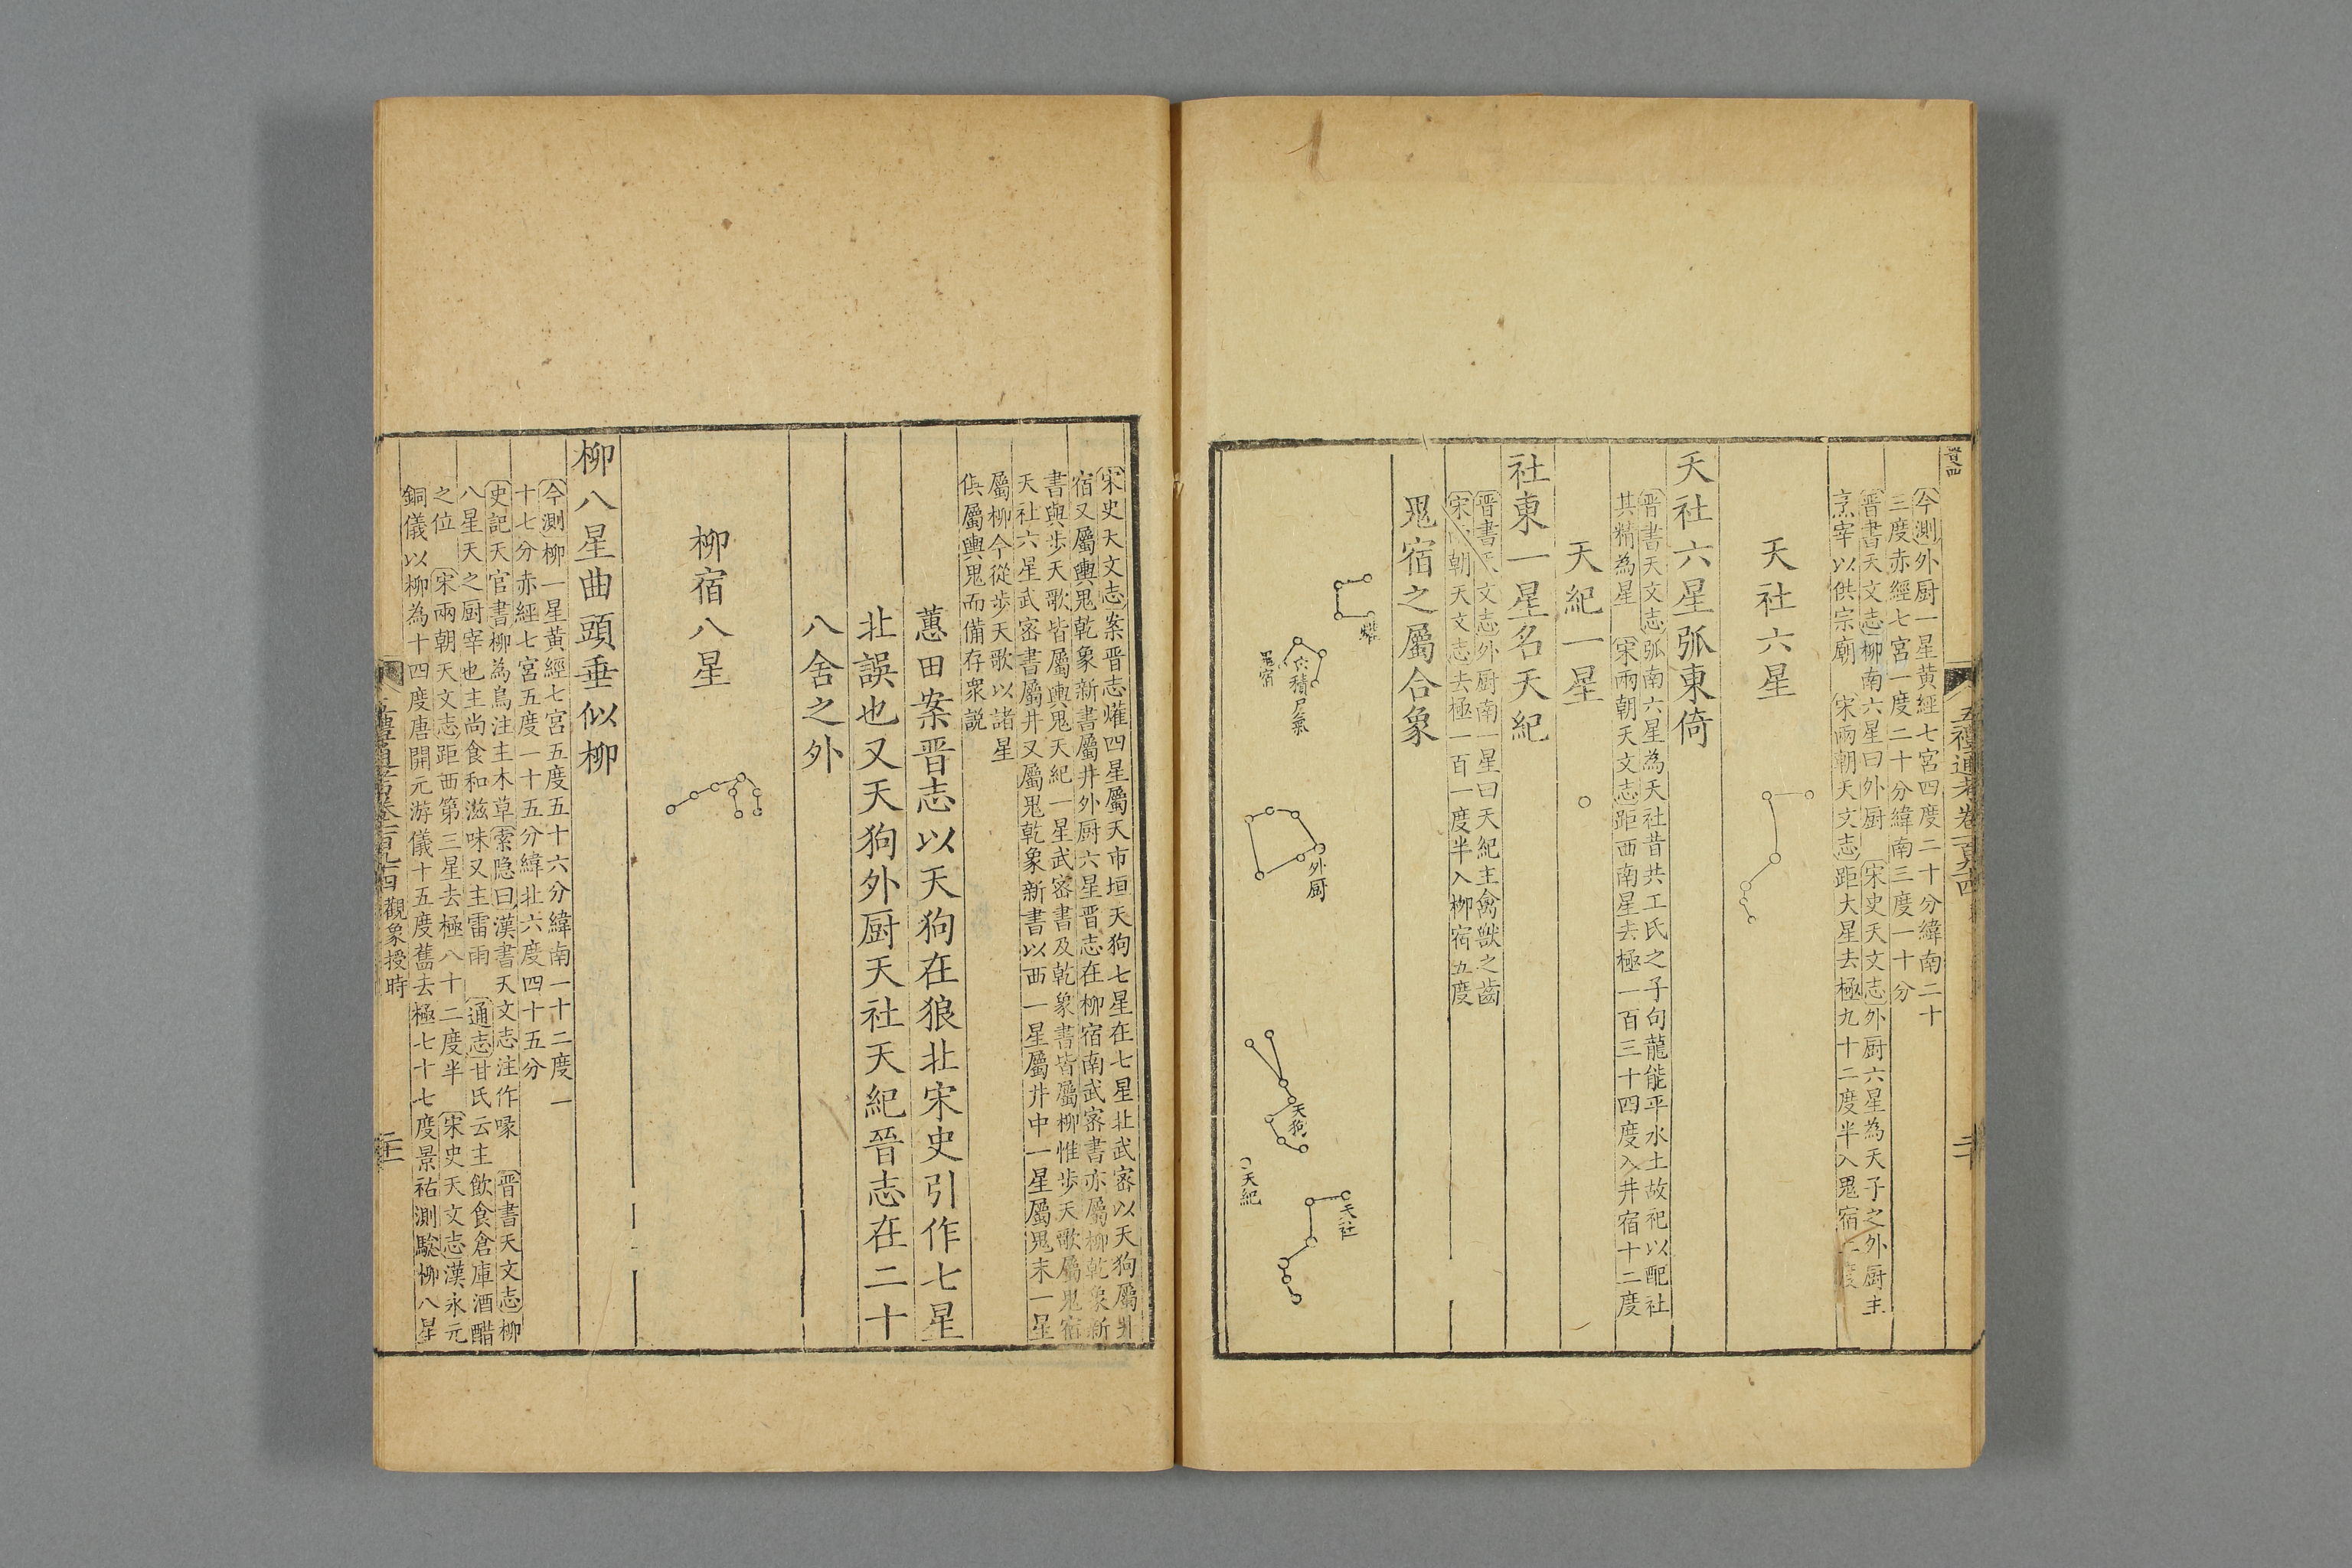 五禮通考卷一百九十四
今測外厨一星黃經七宮四度二十分緯南二十
三度赤經七宮一度二十分緯南三度一十分
晋書天文志柳南六星曰外厨 宋史天文志外厨六星為天子之外厨主
烹宰以供宗廟 宋兩朝天文志距大星去極九十二度半入鬼宿
天社六星
天社六星弧東倚
晋書天文志弧南六星為天社昔共工氏之子句龍能平水土故祀以配社
其精為星 宋兩朝天文志距西南星去極一百三十四度入井宿十二度
天紀一星
社東一星名天紀
晋書天文志外厨南一星曰天紀主禽獸之齒
宋兩朝天文志去極一百一度半入柳宿五度
鬼宿之屬合象
爟
積尸氣
鬼宿
外厨
天狗
天社
天紀
宋史天文志案晋志爟四星屬天市垣天狗七星在七星北武宻以天狗屬井
宿又屬輿鬼乾象新書屬井外厨六星晋志在柳宿南武宻書亦屬柳乾象新
書與步天歌皆屬輿鬼天紀一星武宻書及乾象書皆屬柳惟步天歌屬鬼宿
天社六星武宻書屬井又屬鬼乾象新書以西一星屬井中一星屬鬼末一星
屬柳今從步天歌以諸星
俱屬輿鬼而備存衆說
蕙田案晋志以天狗在狼北宋史引作七星
北誤也又天狗外厨天社天紀晉志在二十
八舍之外
柳宿八星
柳八星曲頭垂似柳
今測柳一星黃經七宮五度五十六分緯南一十二度一
十七分赤經七宮五度一十五分緯北六度四十五分
史記天官書柳為鳥注主木草 索隐曰漢書天文志注作喙 晋書天文志柳
八星天之厨宰也主尚食和滋味又主雷雨 通志甘氏云主飲食倉庫酒醋
之位 宋兩朝天文志距西第三星去極八十二度半 宋史天文志漢永元
銅儀以柳為十四度唐開元游儀十五度舊去極七十七度景祐測驗柳八星
五禮通考卷一百九十四 觀象授時